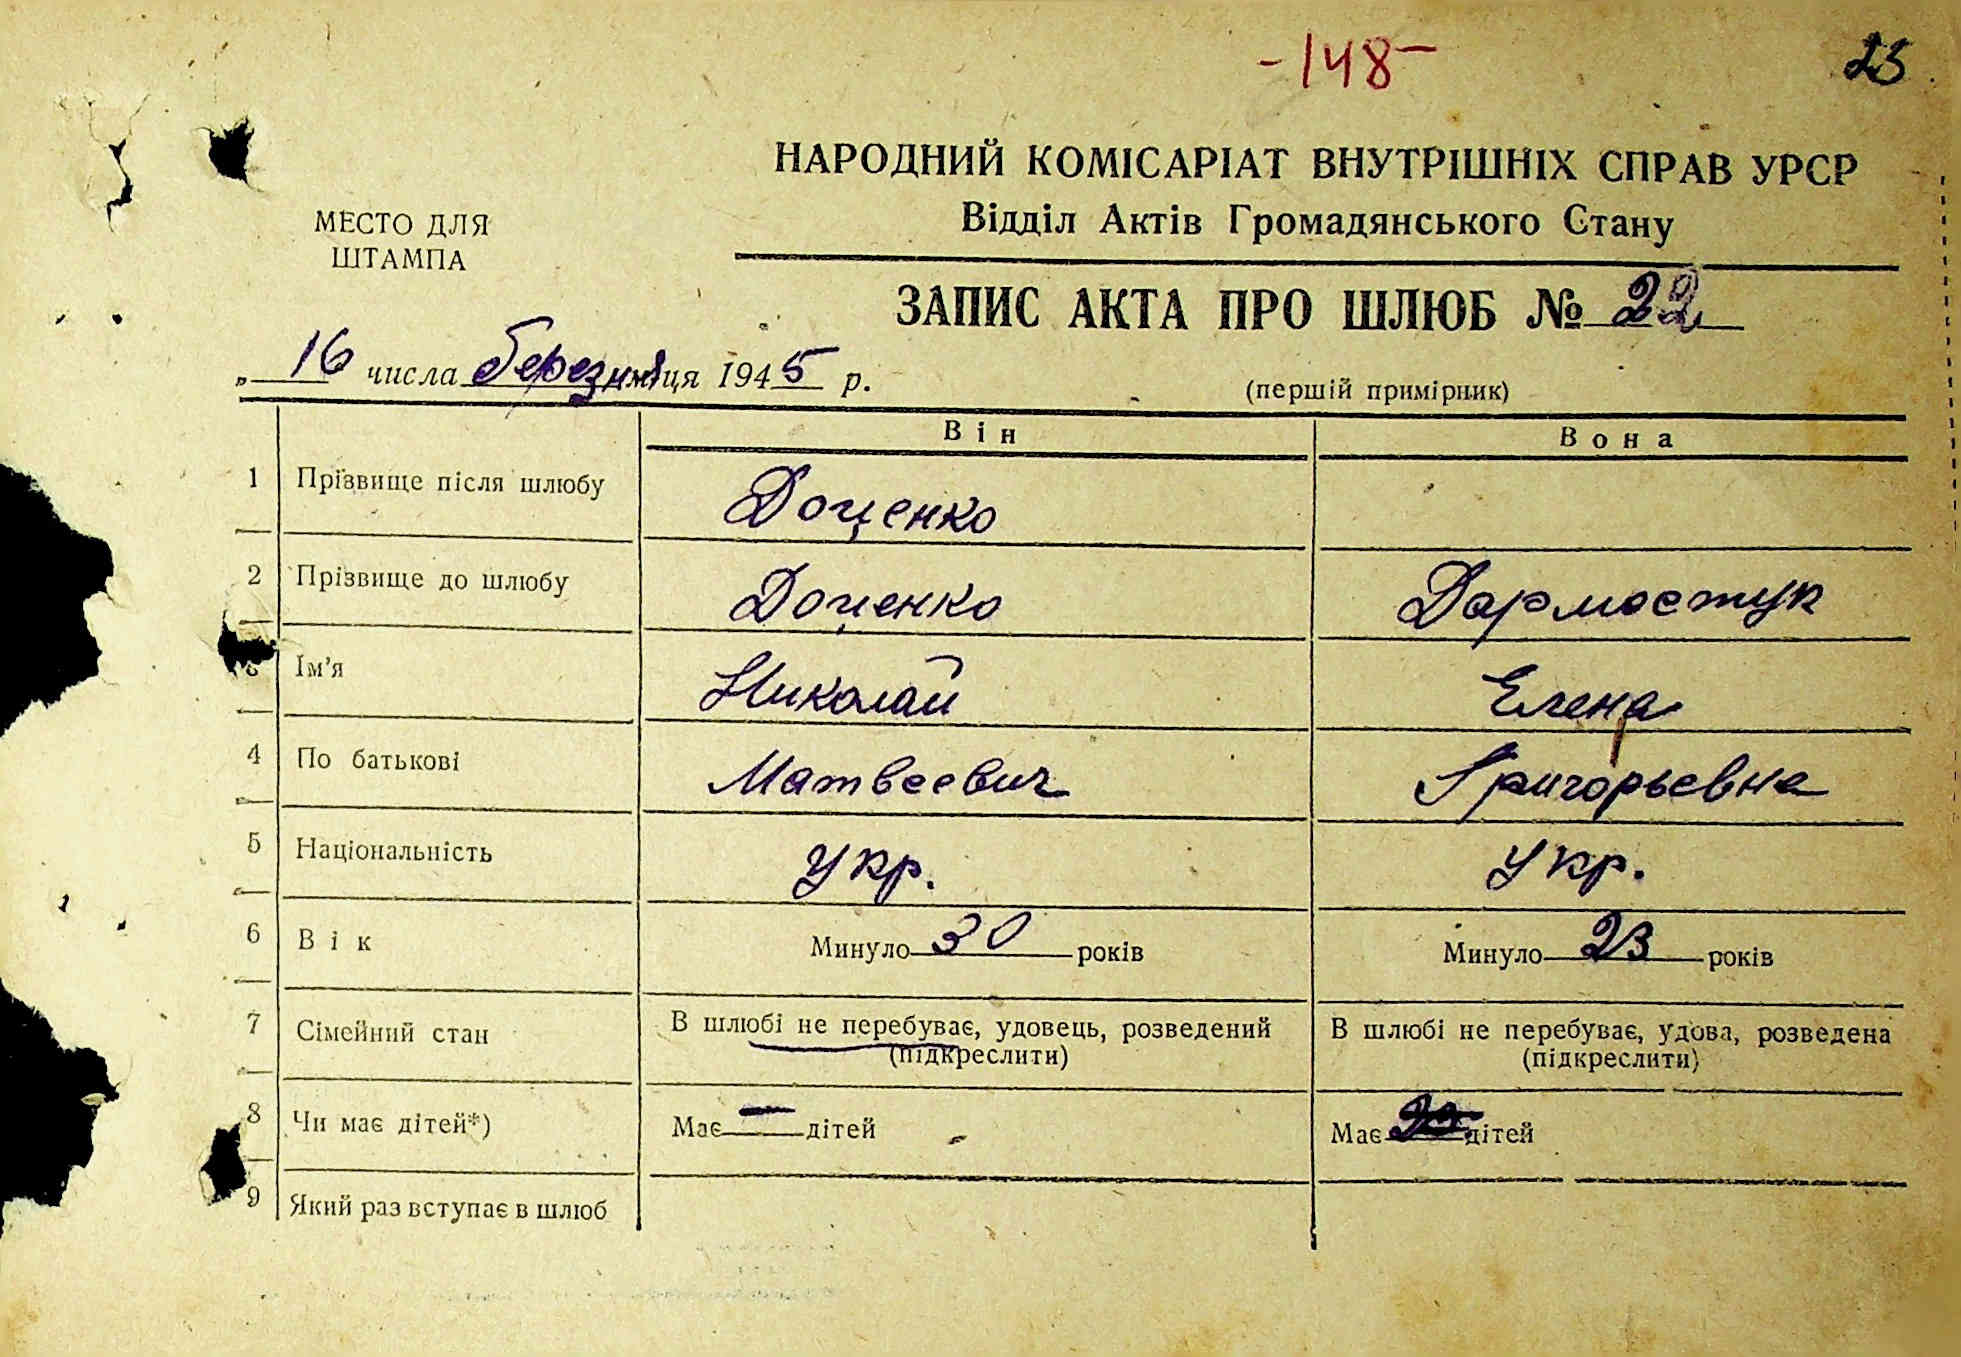 -148-
23
НАРОДНИЙ КОМІСАРІАТ ВНУТРІШНІХ СПРАВ УРСР
МЕСТО ДЛЯ ШТАМПА
Відділ Актів Громадянського Стану
ЗАПИС АКТА ПРО ШЛЮБ № 22
„ 16 числа березня місяця 1945 р.
(першій примірник)
Він Вона
1 Прізвище після шлюбу Доценко
2 Прізвище до шлюбу Доценко Дармостук
3 Ім’я Николай Елена
4 По батькові Матвеевич Григорьевна
5 Національність Укр. Укр.
6 Вік Минуло 30 років Минуло 23 років
7 Сімейний стан В шлюбі не перебуває, удовець, розведений В шлюбі не перебуває, удова, розведена
(підкреслити) (підкреслити)
8 Чи має дітей*) Має — дітей Має дітей
9 Який раз вступає в шлюб